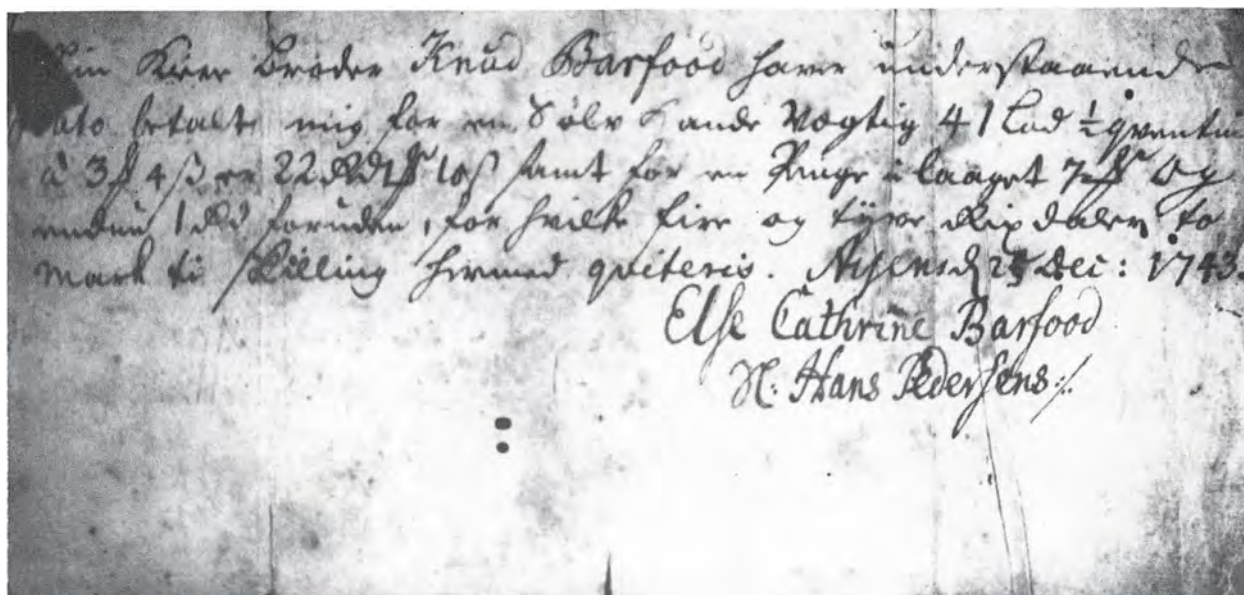 Min Kiær Broder Knud Barfood haver understaaende
dato betalt mig for en Sølv Kande Vægtig 41 Lod ½ qventin
à 3 ℳ 4 ß er 22 Rd 1 ℳ 10 ß samt for en Penge i laaget 7 ℳ Og
endnu 1 Rd foruden, for hvilke fire og tyve Rixdaler to
Mark ti Skilling hermed qviteris. Assens d 25 Dec: 1743.
Else Cathrine Barfood
Sl: Hans Pedersens ./.